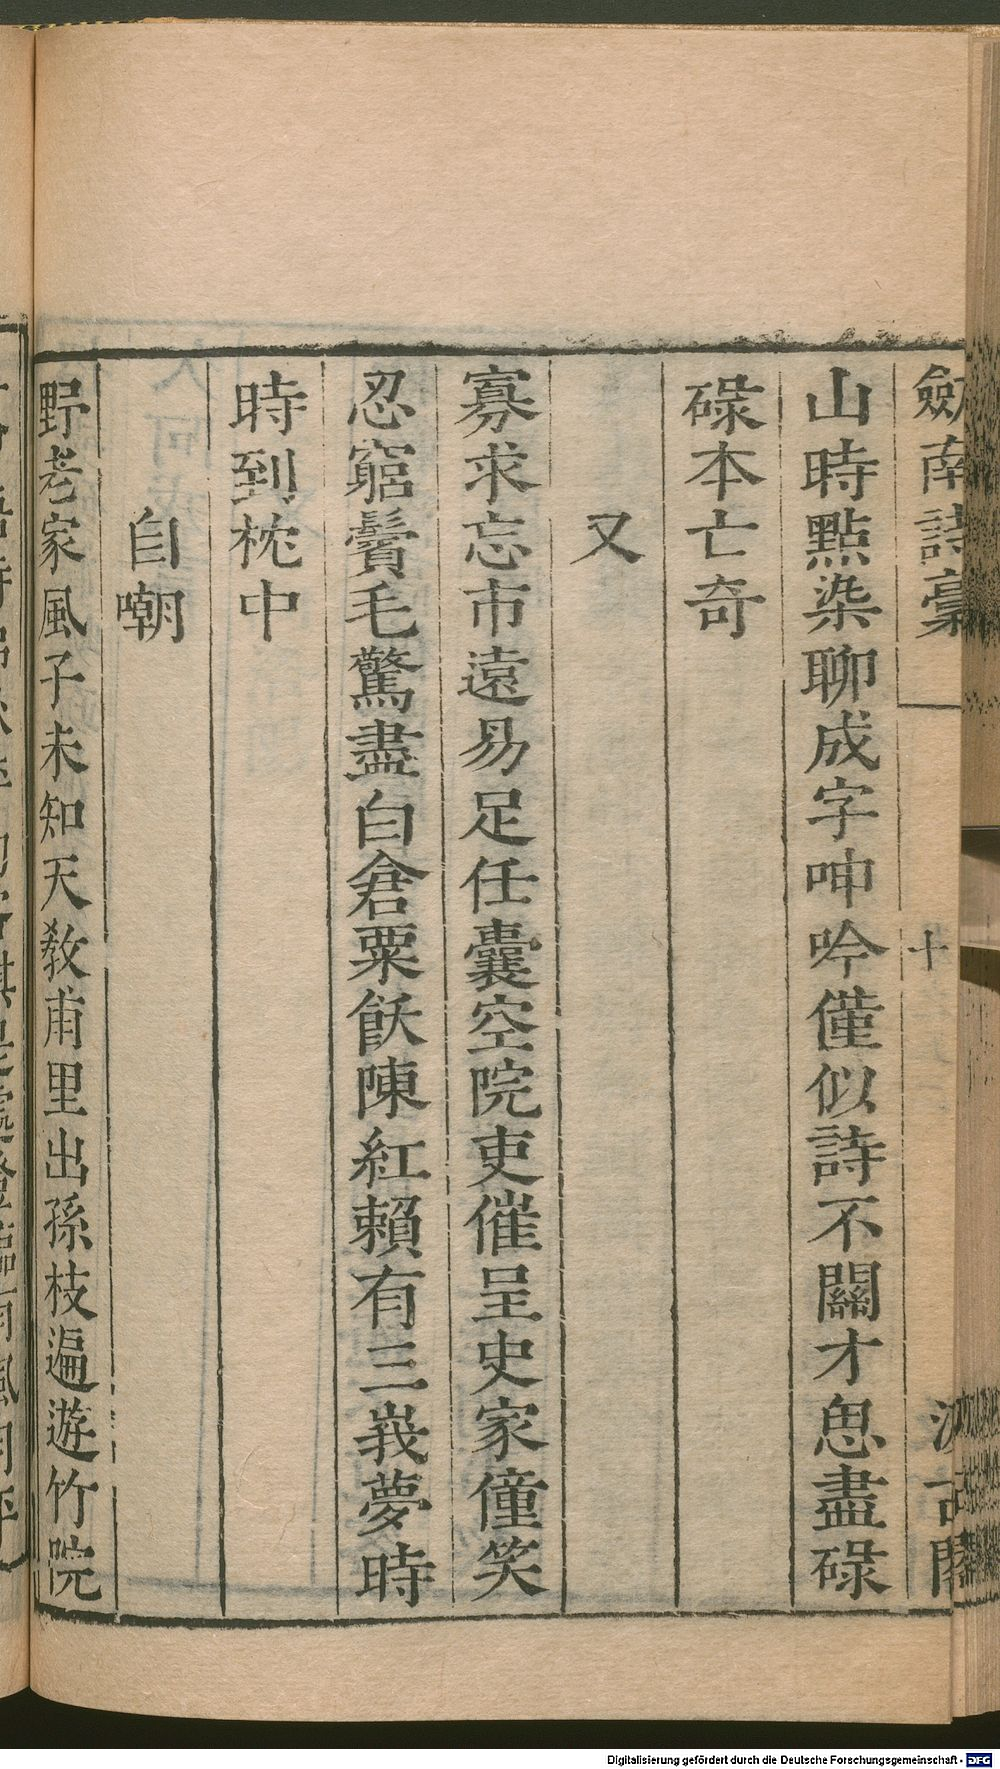 劒南詩稾
十
汲古閣
山時點染聊成字呻吟僅似詩不關才思盡碌
碌本亡奇
又
寡求忘市遠易足任囊空院吏催呈史家僮笑
忍窮鬢毛驚盡白倉粟飫陳紅賴有三峩夢時
時到枕中
自嘲
野老家風子未知天教甫里出孫枝遍遊竹院
Digitalisierung gefördert durch die Deutsche Forschungsgemeinschaft - DFG